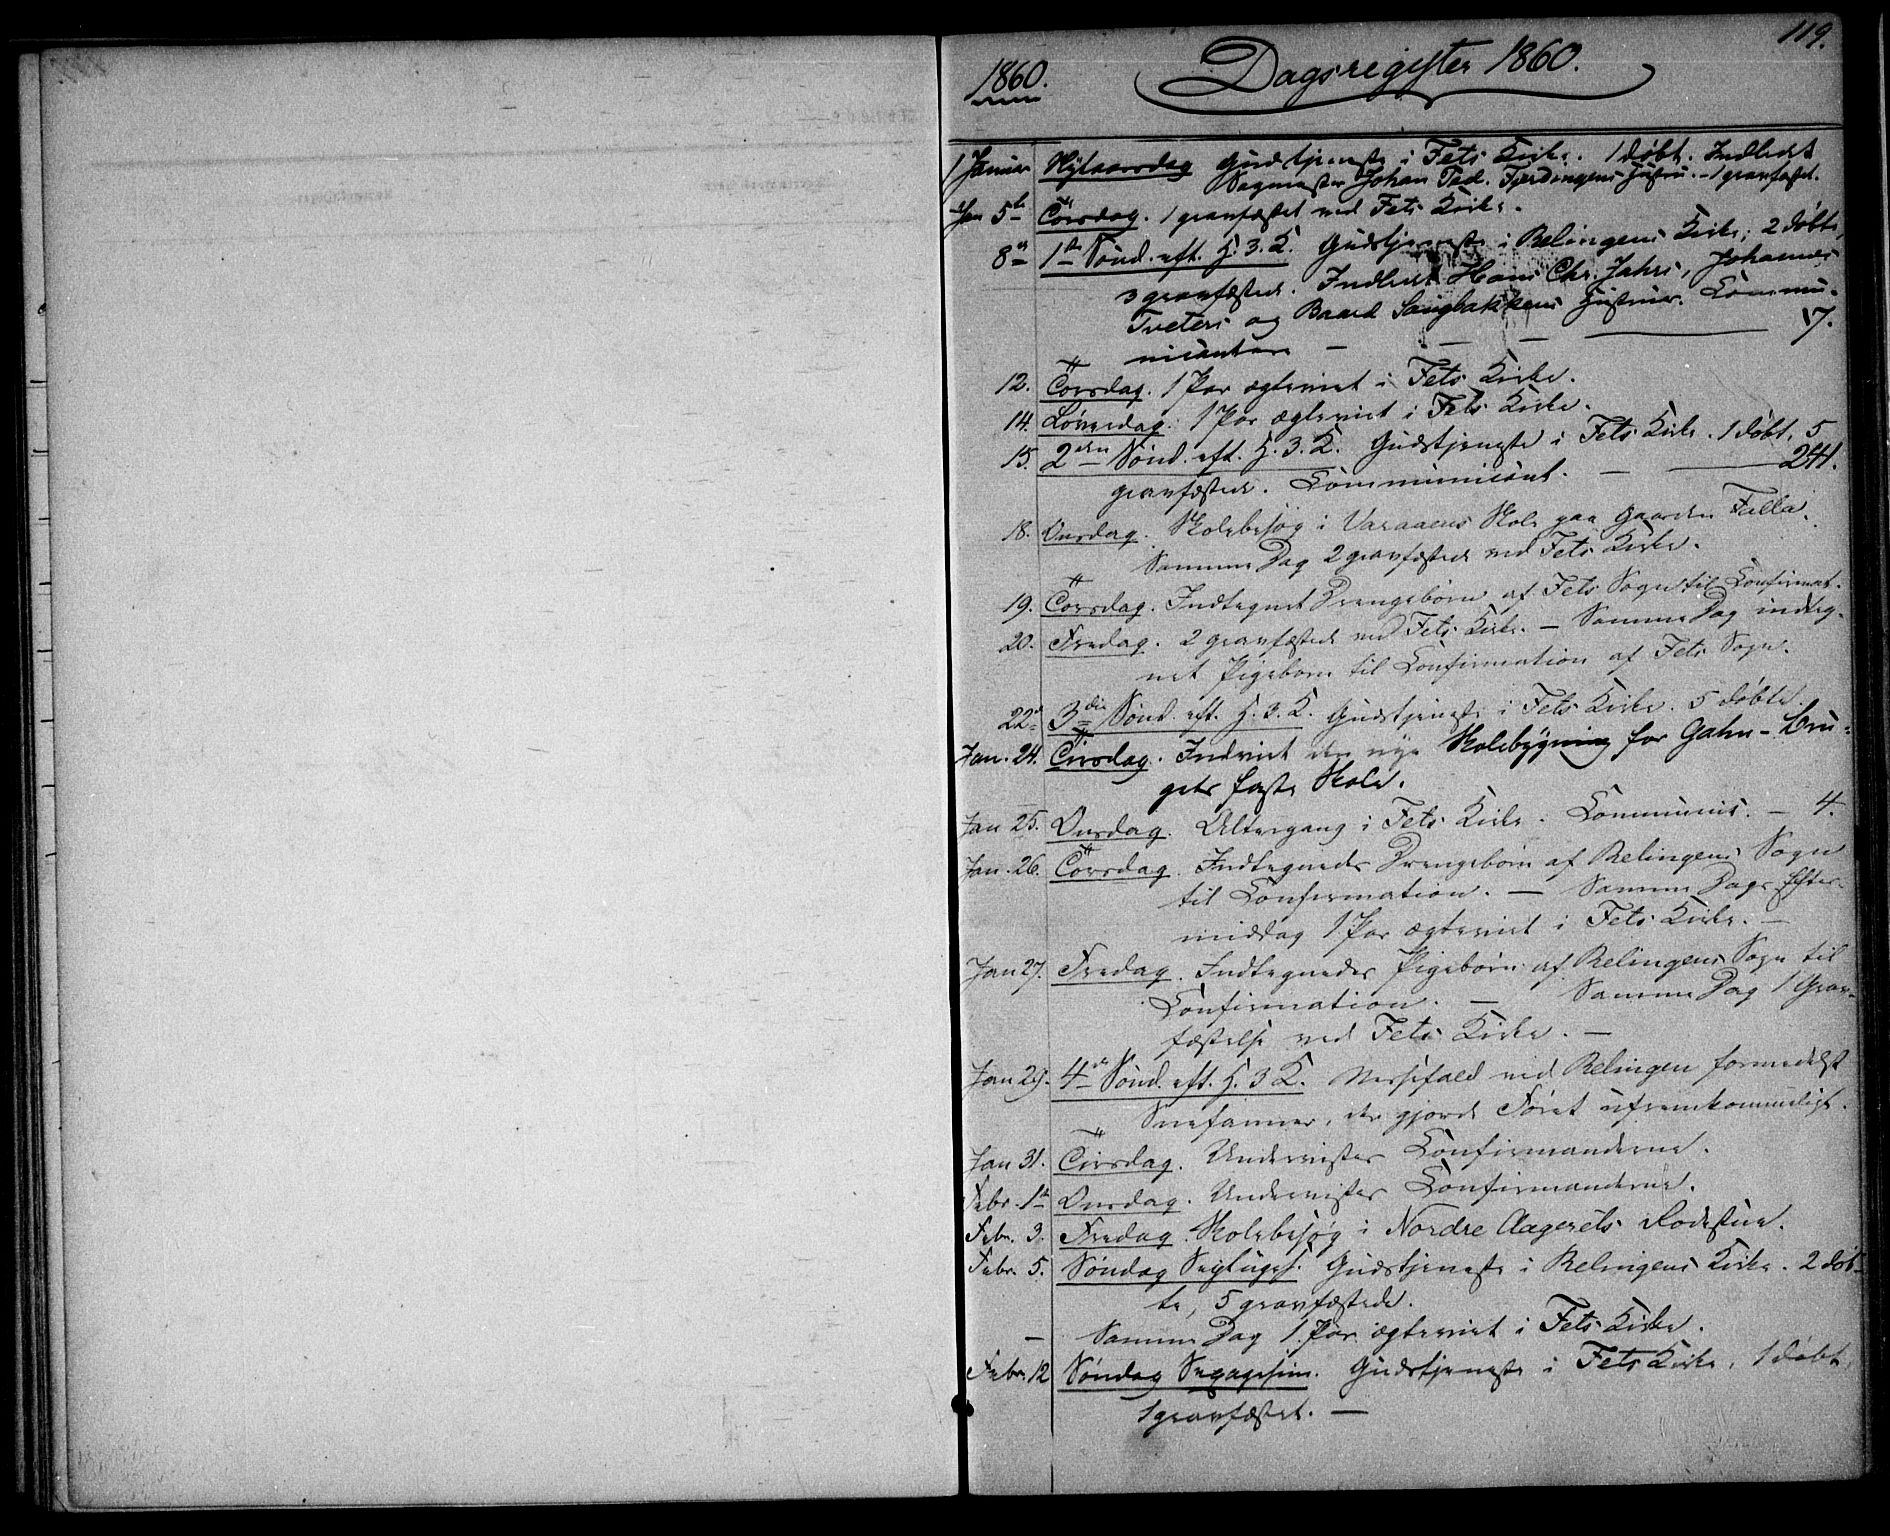 119.
1860. Dagsregister 1860.
1 Januar Nytaarsdag Gudstjeneste i Fets Kirke. 1 døbt. Indledet
Sagmester Johan Tad. Fjerdingens Hustru. - 1 gravfæstet.
Jan 5te Torsdag. 1 gravfæstet ved Fets Kirke.
8de 1ste Sønd. eft. H. 3. K. Gudstjeneste i Relingens Kirke; 2 døbte,
3 gravfæstede. Indledet Hans Chr. Jahrs, Johannes
Tveters og Baard Saugbakkens Hustruer. Commu-
nicanter — — — 17.
12. Torsdag. 1 Par ægteviet i Fets Kirke.
14. Løverdag. 1 Par ægteviet i Fets Kirke.
15. 2den Sønd. eft. H. 3. K. Gudstjeneste i Fets Kirke. 1 døbt, 5
gravfæstede. Communicant. — 241.
18. Onsdag. Skolebesøg i Varaaens Skole paa Gaarden Falla.
Samme Dag 2 gravfæstede ved Fets Kirke.
19. Torsdag. Indtegnet Drengebørn af Fets Sogn til Confirmat.
20. Fredag. 2 gravfæstede ved Fets Kirke. — Samme Dag indteg-
net Pigebørn til Confirmation af Fets Sogn.
22de 3die Sønd. eft. H. 3. K. Gudstjeneste i Fets Kirke. 5 døbte.
Jan. 24. Tirsdag. Indviet den nye Skolebygning for Gahn-Bru-
gets faste Skole.
Jan 25. Onsdag. Altergang i Fets Kirke. Communic. — 4.
Jan. 26. Torsdag. Indtegnedes Drengebørn af Relingens Sogn
til Confirmation. — Samme Dags Efter-
middag 1 Par ægteviet i Fets Kirke. —
Jan 27. Fredag. Indtegnedes Pigebørn af Relingens Sogn til
Confirmation. — Samme Dag 1 Grav-
fæstelse ved Fets Kirke. —
Jan 29. 4de Sønd. eft. H. 3 K. Messefald ved Relingen formedelst
Sneefanner, der gjorde Føret ufremkommeligt.
Jan 31. Tirsdag. Undervistes Confirmanderne.
Febr. 1ste Onsdag. Undervistes Confirmanderne.
Febr. 3. Fredag. Skolebesøg i Nordre Aagerets Rodestue.
Febr. 5. Søndag Septuges. Gudstjeneste i Relingens Kirke. 2 døb-
te, 5 gravfæstede.
— Samme Dag 1 Par ægteviet i Fets Kirke.
Febr. 12 Søndag Sexagesim. Gudstjeneste i Fets Kirke, 1 døbt,
1 gravfæstet. —